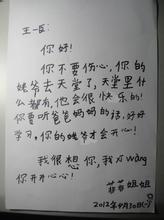 王一臣:
你好!
你不要伤心,你的
姥爷去天堂了,天堂里什
么都有,他会很快乐的!
你要听爸爸妈妈的话,好好
学习,你的姥爷才会开心!
我很想你,我xīwàng
你开开心心!
菲菲姐姐
2012年9月30日(一)